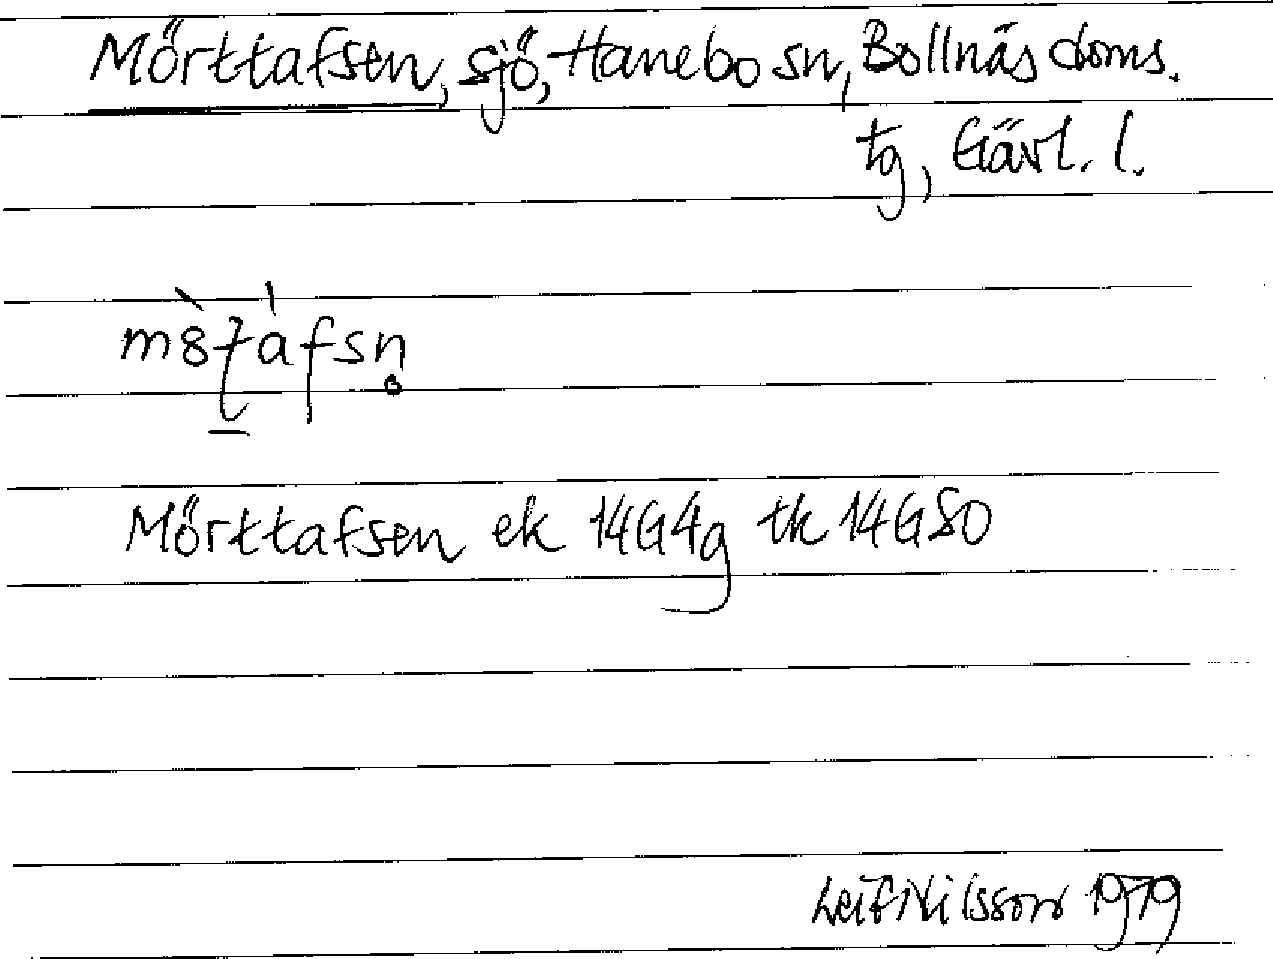 Mörttafsen, sjö, Hanebo sn, Bollnäs doms.
tg, Gävl. l.
m8̀ʈáfsn̥
Mörttafsen ek 14G4g tk 14GSO
Leif Nilsson 1979